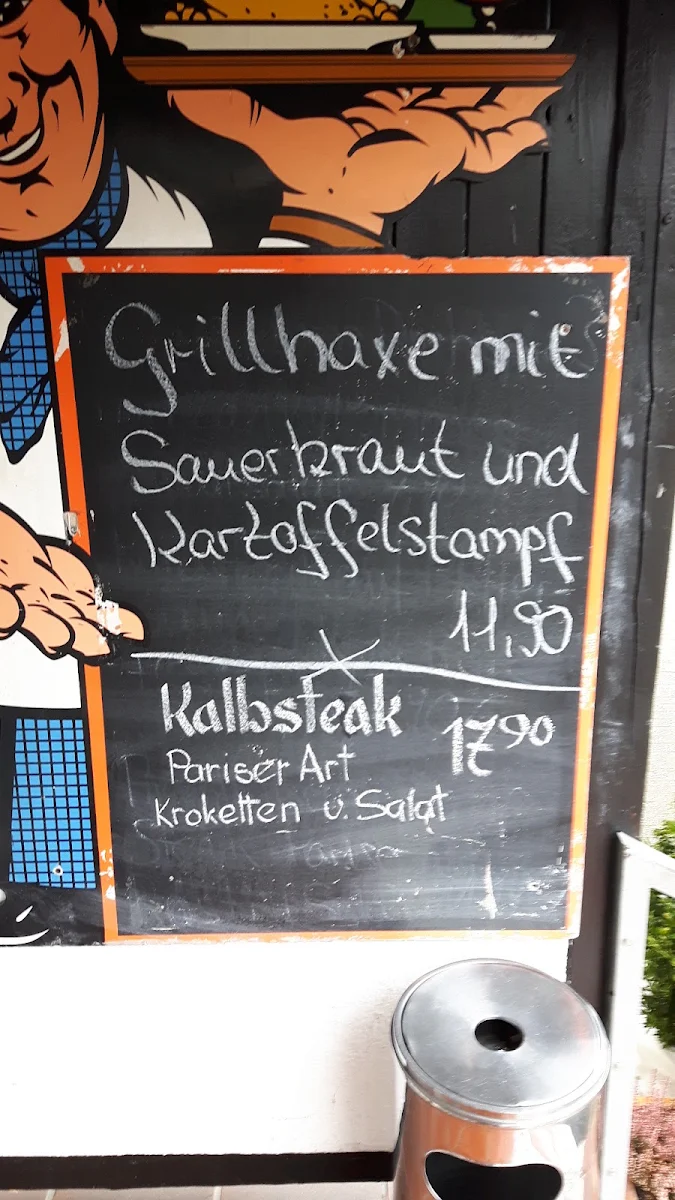 Grillhaxe mit
Sauerkraut und
Kartoffelstampf
11,90
Kalbsteak 17,90
Pariser Art
Kroketten u. Salat